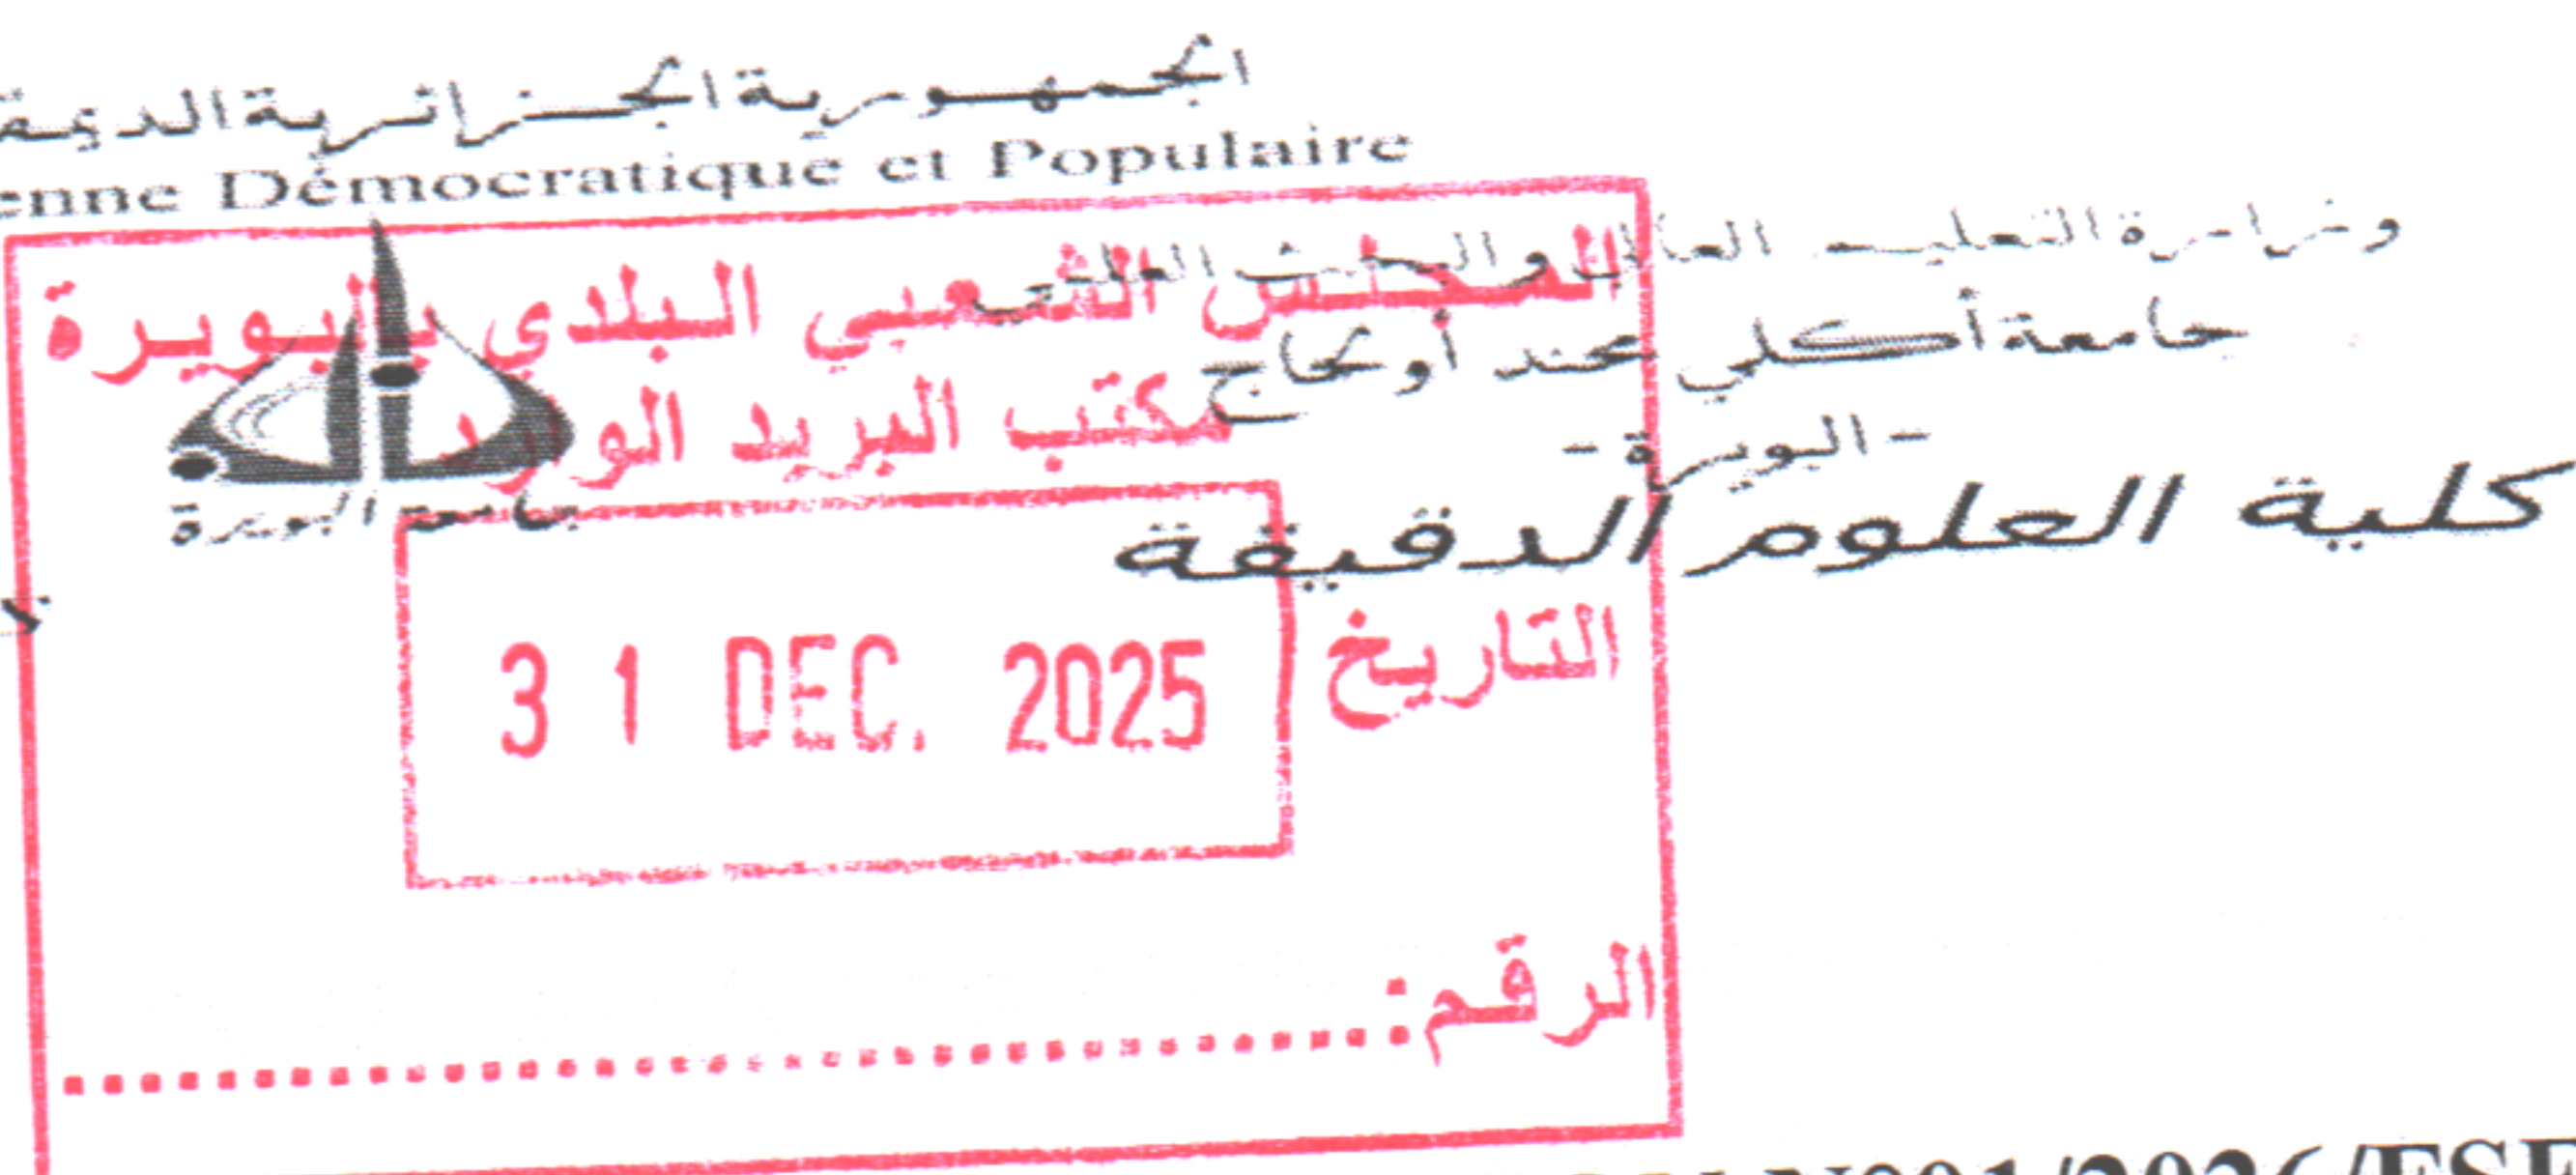 الجمهورية الجزائرية الديمق
enne Démocratique et Populaire
وزارة التعليم العالي والبحث العلمي
جامعة أكلي محند أولحاج
- البويرة -
كلية العلوم الدقيقة
جامعة البويرة
المجلس الشعبي البلدي بالبويرة
مكتب البريد الوارد
التاريخ
31 DEC. 2025
الرقم:
N001/2026/FSE